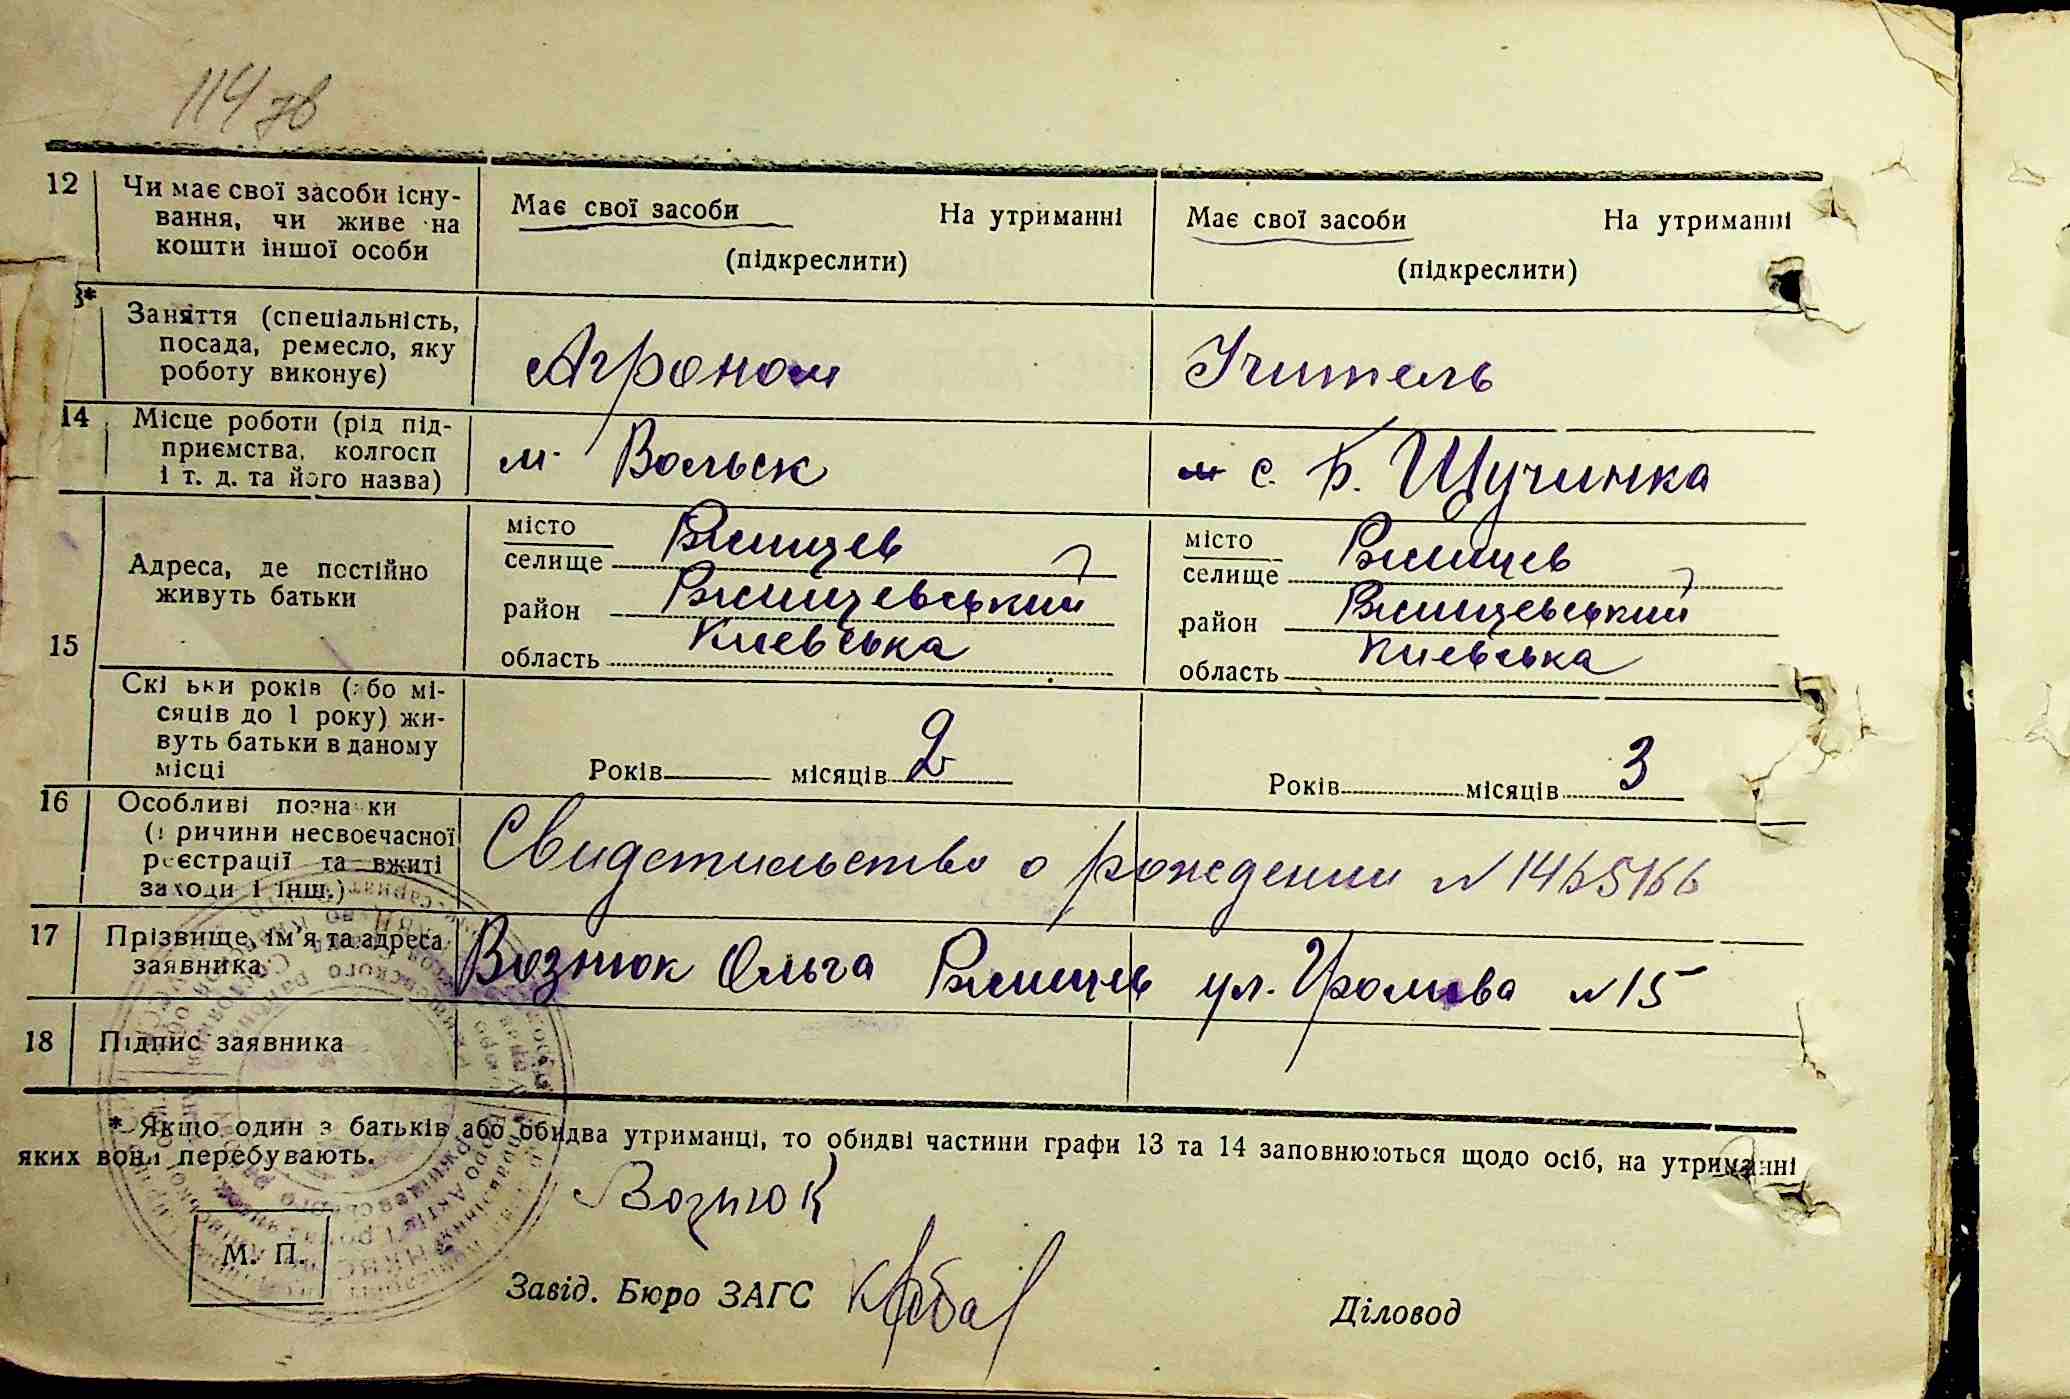 114 зв
12 Чи має свої засоби існу-
вання, чи живе на
кошти іншої особи
Має свої засоби На утриманні
(підкреслити)
Має свої засоби На утриманні
(підкреслити)
Заняття (спеціальність,
посада, ремесло, яку
роботу виконує)
Агроном
Учитель
14 Місце роботи (рід під-
приємства, колгосп
і т. д. та його назва)
м. Вольск
с. Б. Щучинка
15
Адреса, де постійно
живуть батьки
місто
селище Ржищев
район Ржищевський
область Киевська
місто
селище Ржищев
район Ржищевський
область Киевська
Скільки років (або мі-
сяців до 1 року) жи-
вуть батьки в даному
місці
Років місяців 2
Років місяців 3
16 Особливі познаки
(причини несвоєчасної
реєстрації та вжиті
заходи і інш.)
Свидетильство о рождении N 1465166
17 Прізвище, ім'я та адреса
заявника
Вознюк Ольга Ржищев ул. N 15
18 Підпис заявника
* Якщо один з батьків або обидва утриманці, то обидві частини графи 13 та 14 заповнюються щодо осіб, на утриманні
яких вони перебувають.
Вознюк
М. П.
Завід. Бюро ЗАГС
Діловод